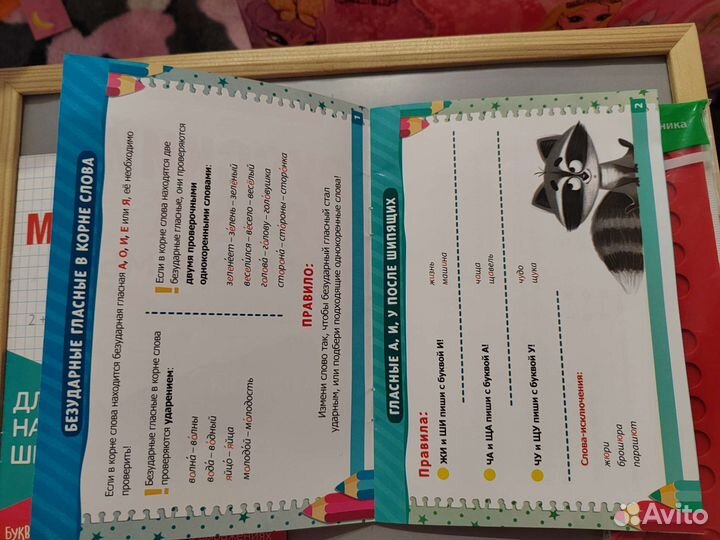 БЕЗУДАРНЫЕ ГЛАСНЫЕ В КОРНЕ СЛОВА
Если в корне слова находится безударная гласная А, О, И, Е или Я, её необходимо
проверить!
Безударные гласные в корне слова
проверяются ударением:
волна́ – во́лны
вода́ – во́дный
яйцо́ – я́йца
молодо́й – мо́лодость
Если в корне слова находятся две
безударные гласные, они проверяются
двумя проверочными
однокоренными словами:
зелене́ет – зе́лень – зелёный
весели́лся – ве́село – весёлый
голова́ – го́лову – голо́вушка
сторона́ – сто́роны – сторо́нка
ПРАВИЛО:
Измени слово так, чтобы безударный гласный стал
ударным, или подбери подходящие однокоренные слова!
1
ГЛАСНЫЕ А, И, У ПОСЛЕ ШИПЯЩИХ
Правила:
ЖИ и ШИ пиши с буквой И!
жизнь
машина
ЧА и ЩА пиши с буквой А!
чаша
щавель
ЧУ и ЩУ пиши с буквой У!
чудо
щука
Слова-исключения:
жюри
брошюра
парашют
2
М
2 +
ДЛ
НА
Ш
БУКВ
ника
Avito